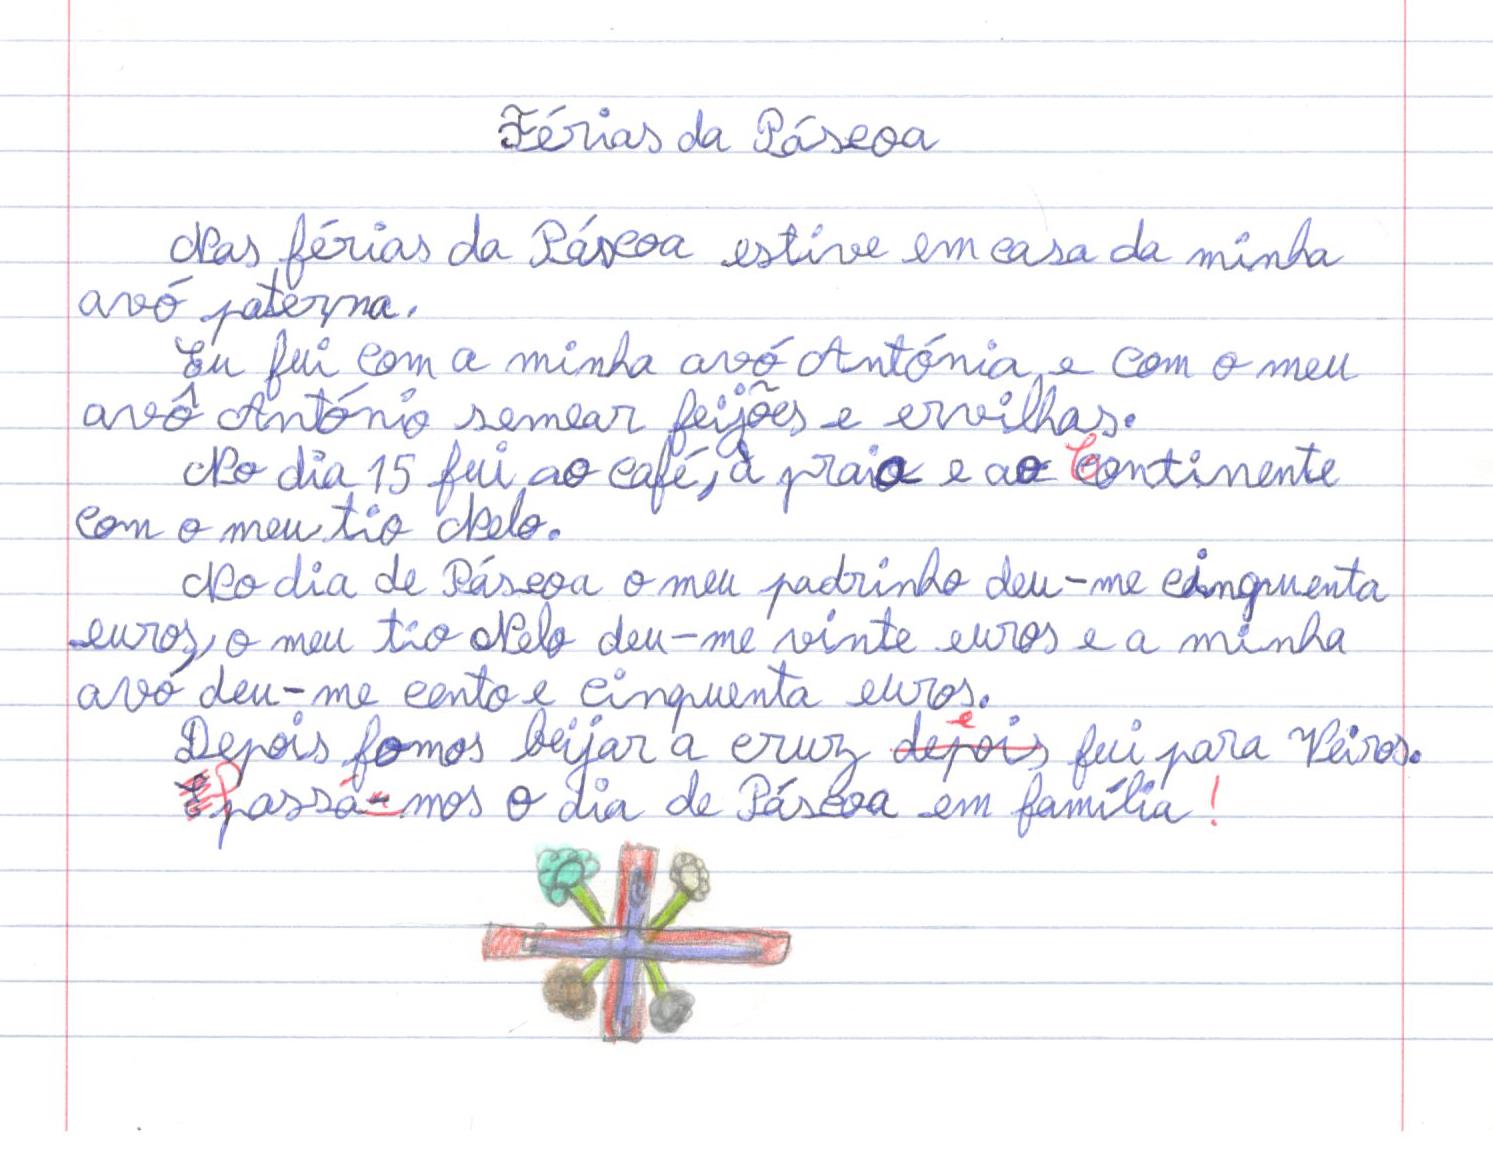 Férias da Páscoa
Nas férias da Páscoa estive em casa da minha
avó paterna.
Eu fui com a minha avó Antónia e com o meu
avô António semear feijões e ervilhas.
No dia 15 fui ao café, à praia e ao Continente
com o meu tio Nelo.
No dia de Páscoa o meu padrinho deu-me cinquenta
euros, o meu tio Nelo deu-me vinte euros e a minha
avó deu-me cento e cinquenta euros.
Depois fomos beijar a cruz depois e fui para Veiros.
Passá-mos o dia de Páscoa em família!